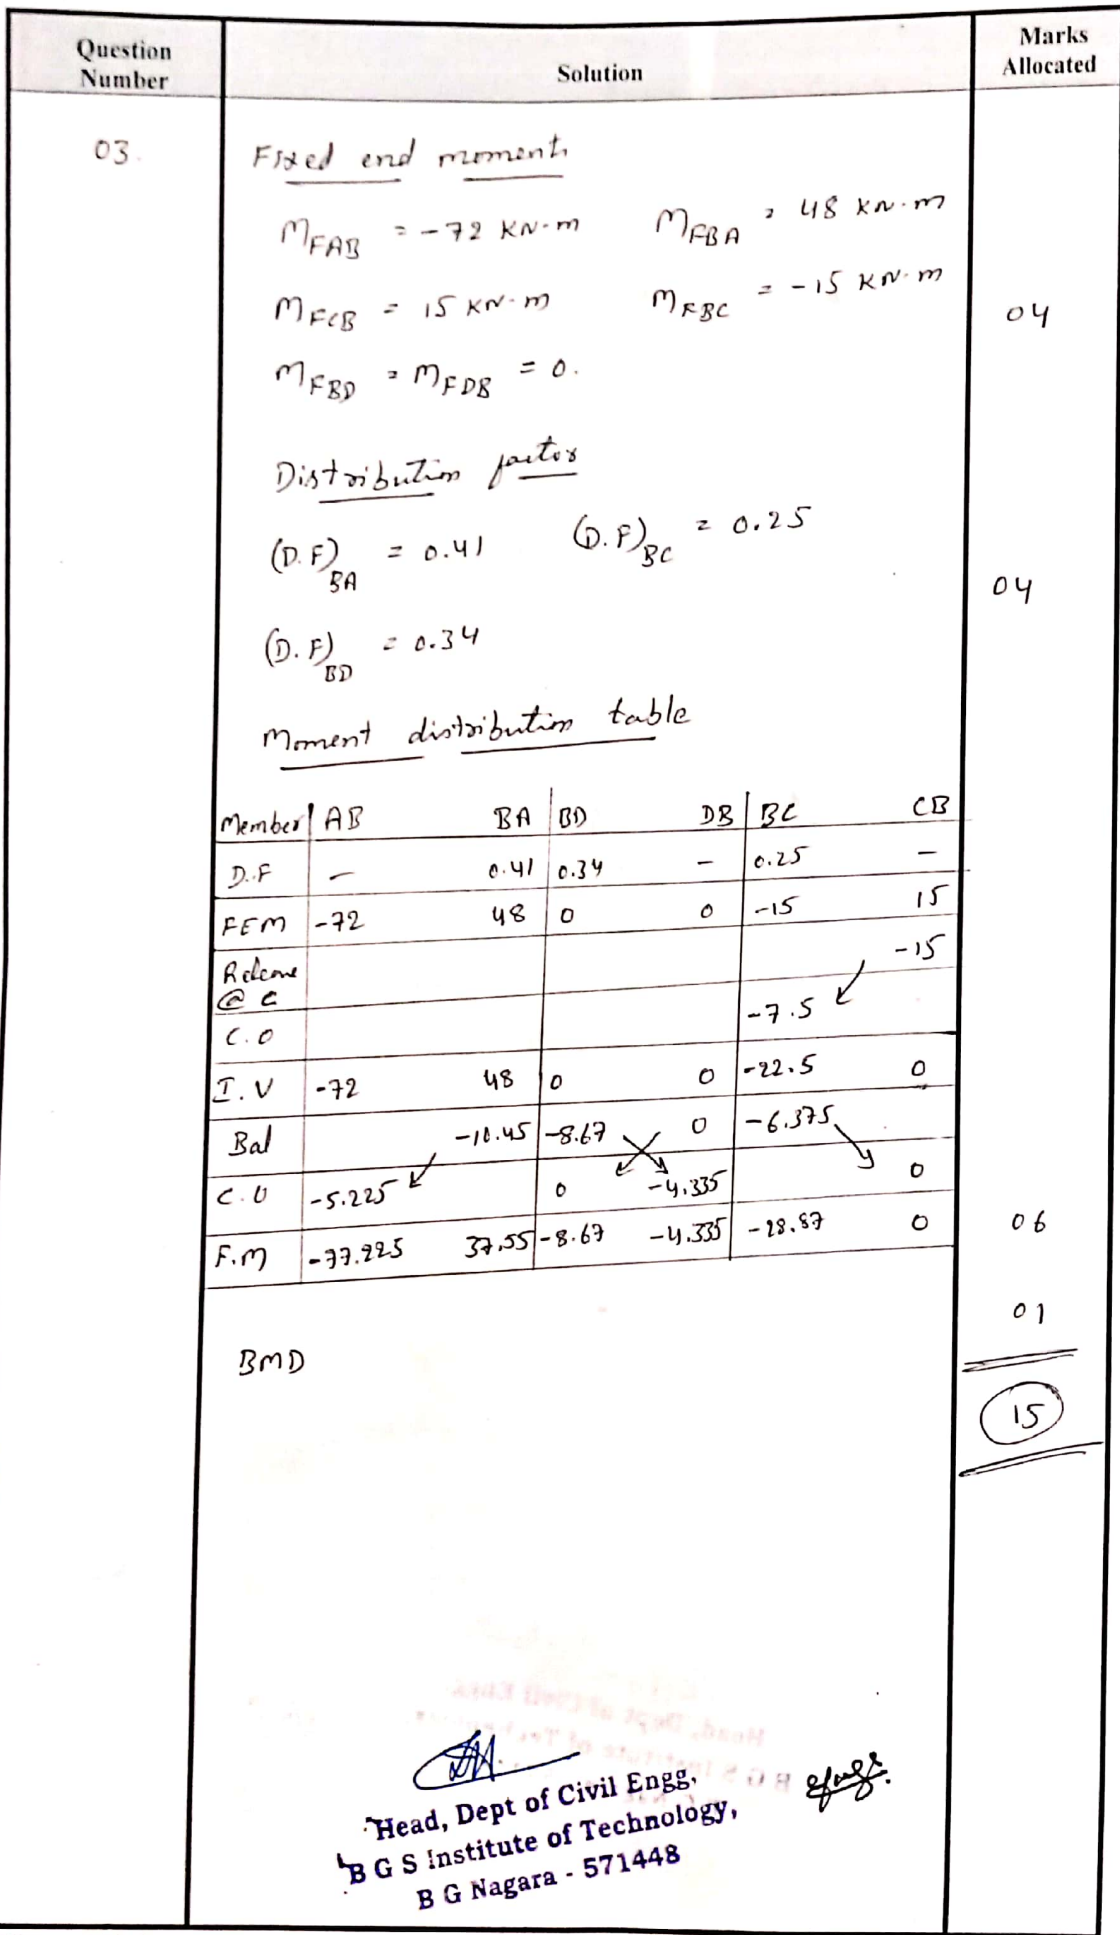 Question Number
Solution
Marks Allocated
03.
Fixed end moments
MFAB = -72 KN-m MFBA = 48 KN.m
MFCB = 15 KN-m MFBC = -15 KN.m
04
MFBD = MFDB = 0.
Distribution factor
(D.F)BA = 0.41 (D.F)BC = 0.25
04
(D.F)BD = 0.34
Moment distribution table
Member AB BA BD DB BC CB
D.F - 0.41 0.34 - 0.25 -
FEM -72 48 0 0 -15 15
Release @ C -15
C.O -7.5
I.V -72 48 0 0 -22.5 0
Bal -10.45 -8.67 0 -6.375
C.O -5.225 0 -4.335 0
F.M -77.225 37.55 -8.67 -4.335 -28.87 0
06
01
BMD
15
Head, Dept of Civil Engg,
B G S Institute of Technology,
B G Nagara - 571448